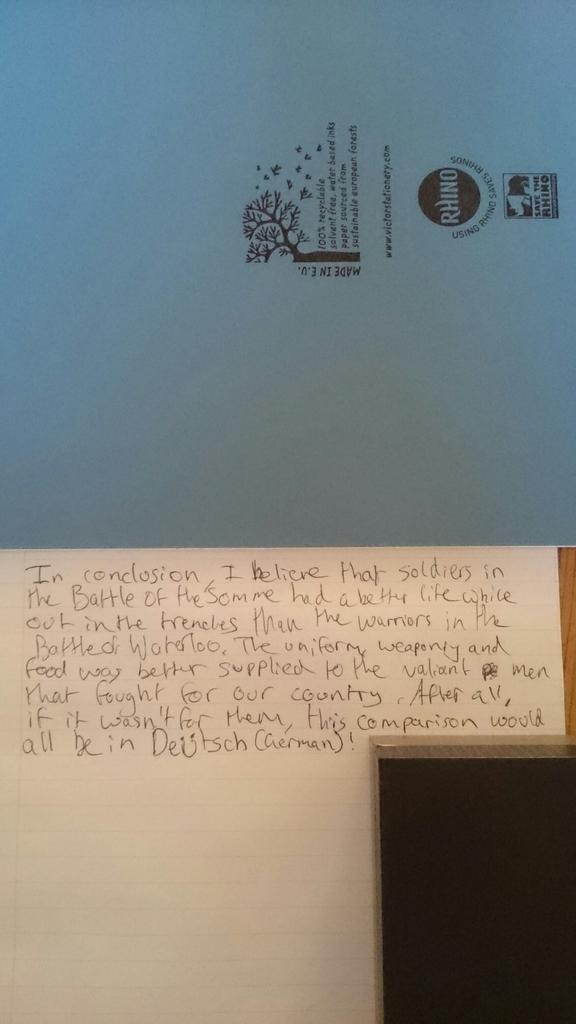 100% recyclable
solvent free, water based inks
paper sourced from
sustainable european forests
MADE IN E.U.
www.victorstationery.com
RHINO
USING RHINO SAVES RHINOS
SAVE THE
RHINO
In conclusion, I believe that soldiers in
the Battle of the Somme had a better life while
out in the trenches than the warriors in the
Battle of Waterloo. The uniform, weaponry and
food was better supplied to the valiant men
that fought for our country. After all,
if it wasn't for them, this comparison would
all be in Deütsch (German)!